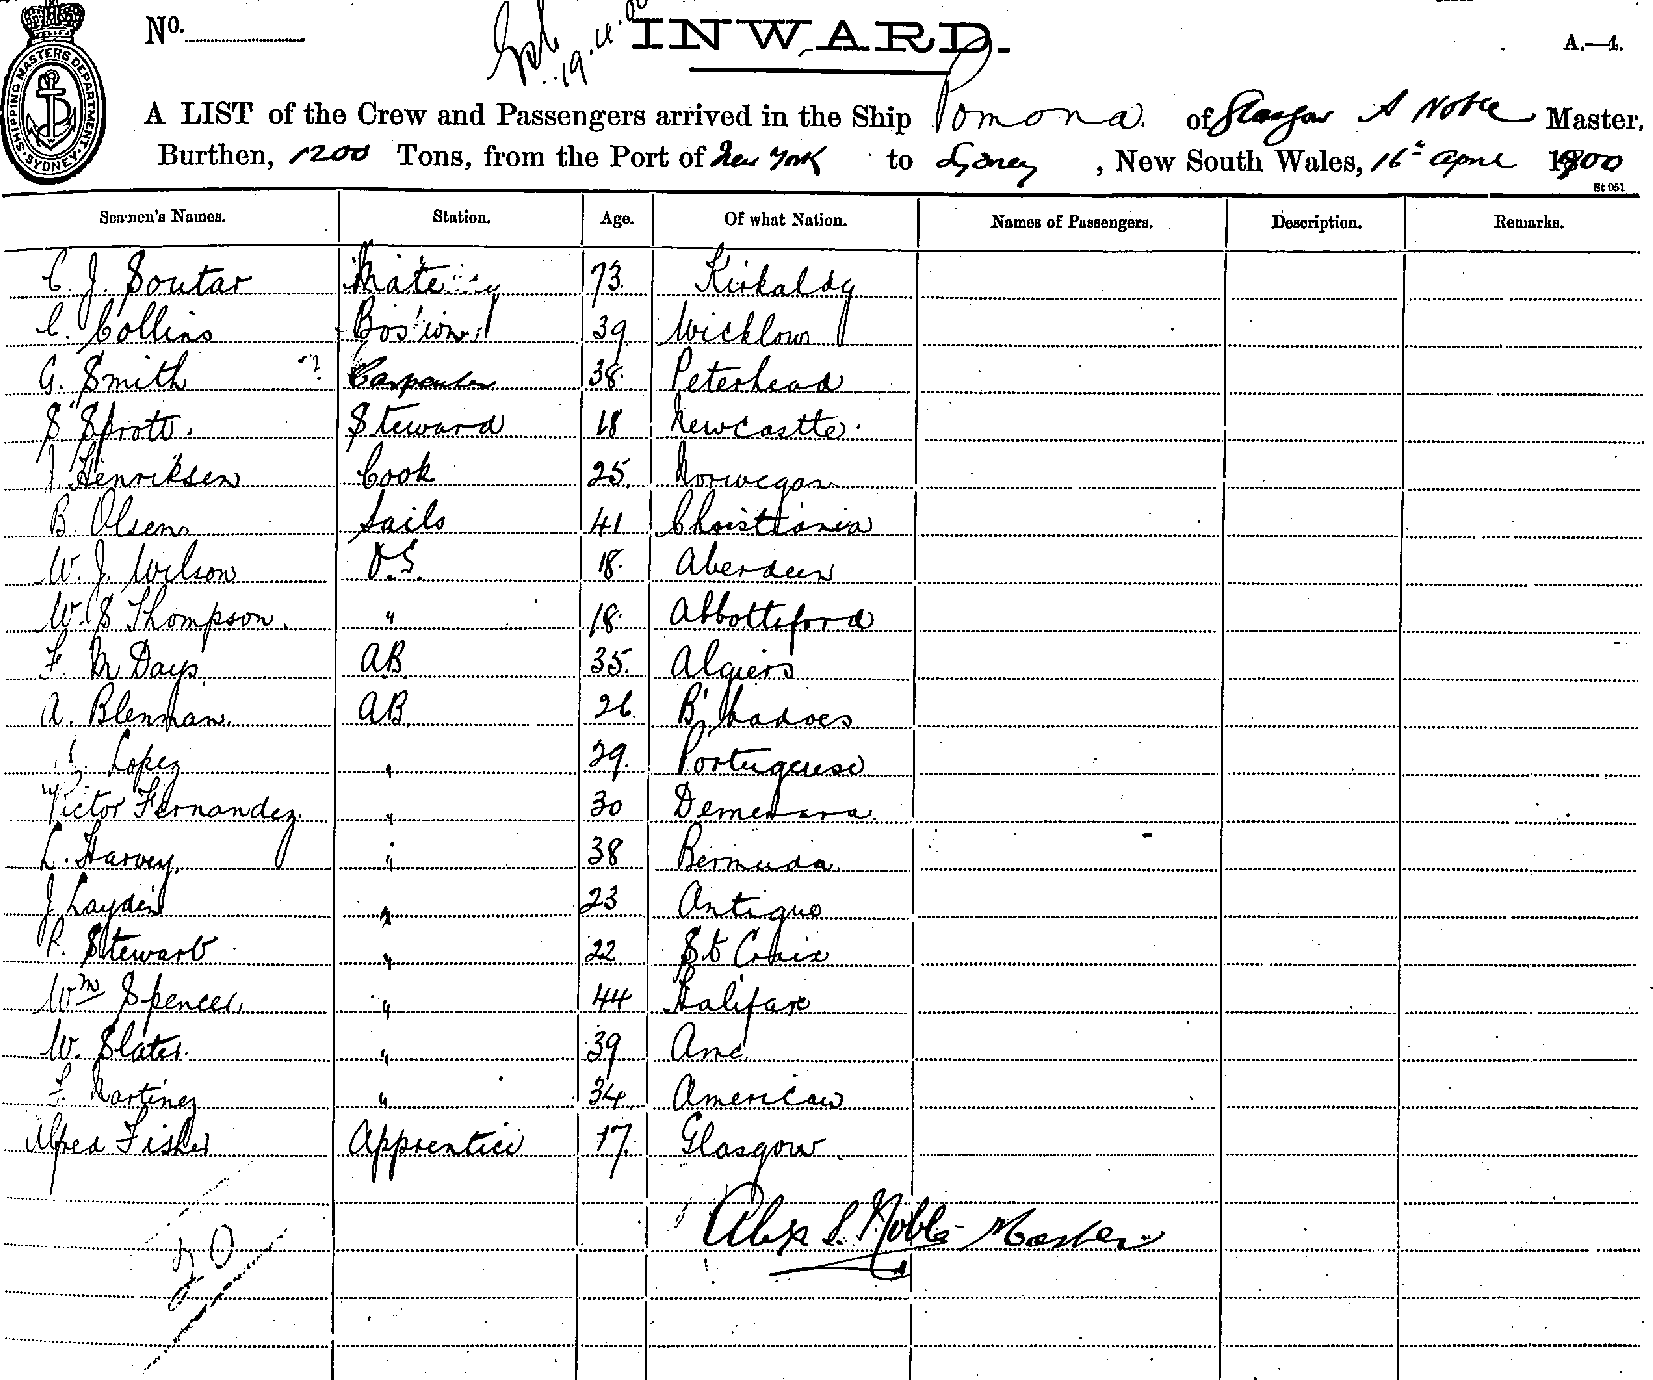 No.
19.4.00
INWARD.
A.—1.
SHIPPING MASTERS DEPARTMENT SYDNEY
A LIST of the Crew and Passengers arrived in the Ship Pomona of Glasgow A Noble Master,
Burthen, 1200 Tons, from the Port of New York to Sydney, New South Wales, 16th April 1900
St 951
Seamen's Names. Station. Age. Of what Nation. Names of Passengers. Description. Remarks.
C. J. Soutar Mate 73 Kirkaldy
C. Collins Bos'un 39 Wicklow
G. Smith Carpenter 38 Peterhead
S Sprott. Steward 18 Newcastle.
J. Henriksen Cook 25 Norwegan
B. Olsen Sails 41 Christiania
W. J. Wilson O.S. 18 Aberdeen
W. S Thompson. " 18 Abbottsford
F. M Days. AB 35 Algiers
A. Blenman. AB. 26 B'badoes
Lopez " 29 Portuguese
Victor Fernandez. " 30 Demerara.
L. Harvey. " 38 Bermuda.
J Layden " 23 Antigua
R. Stewart " 22 St Croix
Wm Spencer. " 44 Halifax
W. Slater. " 39 Ame
F. Martinez " 34 American
Alfred Fisher Apprentice 17 Glasgow.
Alex S. Noble Master
20